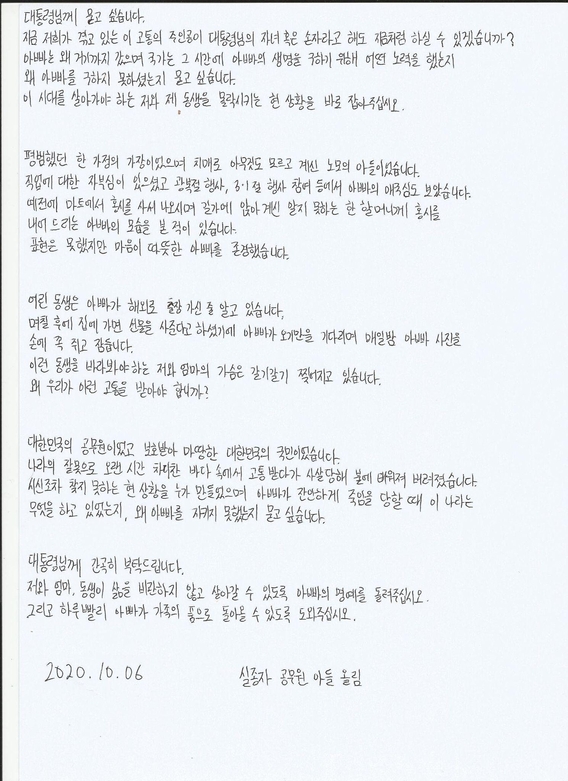 대통령님께 묻고 싶습니다.
지금 저희가 겪고 있는 이 고통의 주인공이 대통령님의 자녀 혹은 손자라고 해도 지금처럼 하실 수 있겠습니까?
아빠는 왜 거기까지 갔으며 국가는 그 시간에 아빠의 생명을 구하기 위해 어떤 노력을 했는지
왜 아빠를 구하지 못하셨는지 묻고 싶습니다.
이 시대를 살아가야 하는 저와 제 동생을 몰락시키는 현 상황을 바로 잡아주십시오.
평범했던 한 가정의 가장이었으며 치매로 아무것도 모르고 계신 노모의 아들이었습니다.
직업에 대한 자부심이 있으셨고 광복절 행사, 3·1절 행사 참여 등에서 아빠의 애국심도 보았습니다.
예전에 마트에서 홍시를 사서 나오시며 길가에 앉아 계신 알지 못하는 한 할머니께 홍시를
내어 드리는 아빠의 모습을 본 적이 있습니다.
표현은 못했지만 마음이 따뜻한 아빠를 존경했습니다.
어린 동생은 아빠가 해외로 출장 가신 줄 알고 있습니다.
며칠 후에 집에 가면 선물을 사준다고 하셨기에 아빠가 오기만을 기다리며 매일밤 아빠 사진을
손에 꼭 쥐고 잠듭니다.
이런 동생을 바라봐야하는 저와 엄마의 가슴은 갈기갈기 찢어지고 있습니다.
왜 우리가 이런 고통을 받아야 합니까?
대한민국의 공무원이었고 보호받아 마땅한 대한민국의 국민이었습니다.
나라의 잘못으로 오랜 시간 차디찬 바다 속에서 고통 받다가 사살당해 불에 태워져 버려졌습니다.
시신조차 찾지 못하는 현 상황을 누가 만들었으며 아빠가 잔인하게 죽임을 당할 때 이 나라는
무엇을 하고 있었는지, 왜 아빠를 지키지 못했는지 묻고 싶습니다.
대통령님께 간곡히 부탁드립니다.
저와 엄마, 동생이 삶을 비관하지 않고 살아갈 수 있도록 아빠의 명예를 돌려주십시오.
그리고 하루빨리 아빠가 가족의 품으로 돌아올 수 있도록 도와주십시오.
2020.10.06 실종자 공무원 아들 올림